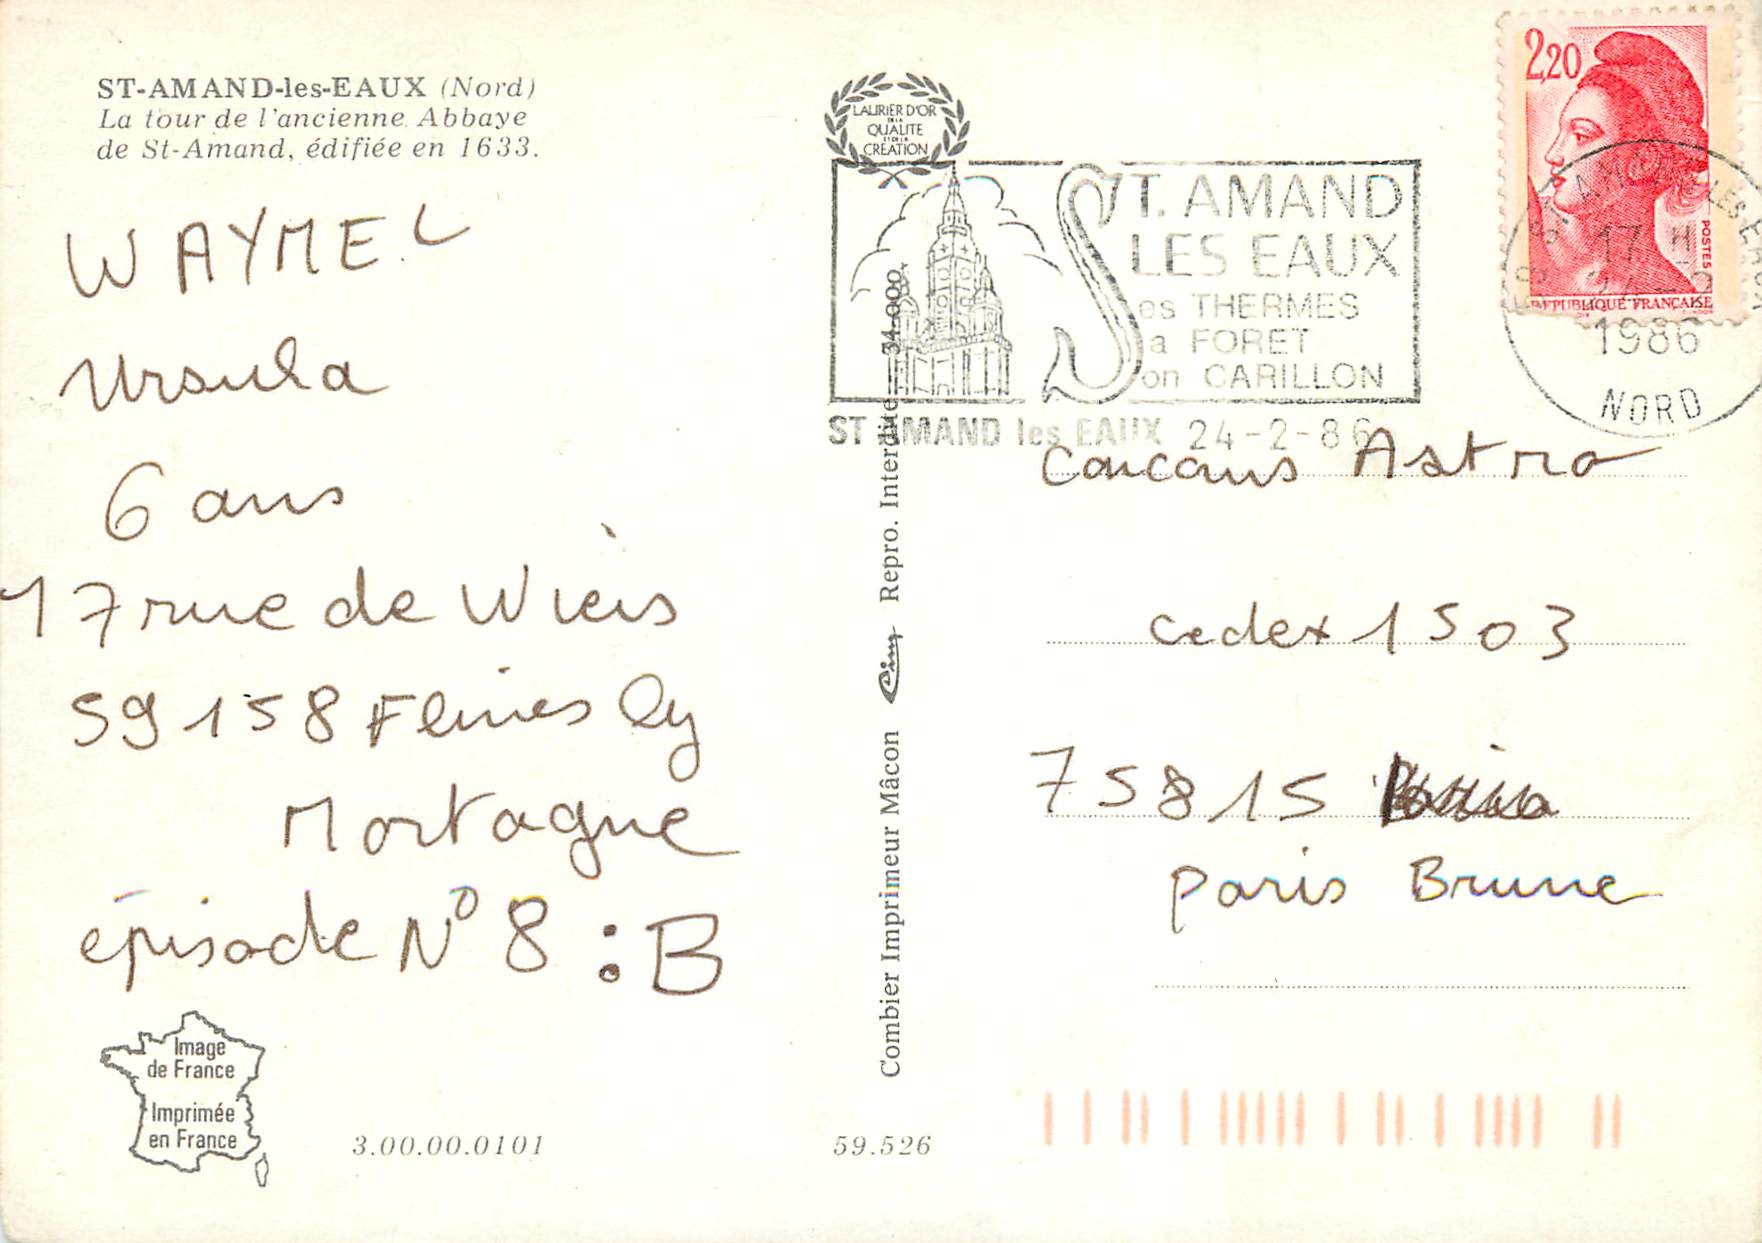 ST-AMAND-les-EAUX (Nord)
La tour de l'ancienne Abbaye
de St-Amand, édifiée en 1633.
WAYMEL
Ursula
6 ans
17 rue de Wiers
59158 Flines ly
Mortagne
épisode N° 8 : B
Image
de France
Imprimée
en France
3.00.00.0101
59.526
Combier Imprimeur Mâcon Cim Repro. Interdite 34.000
LAURIER D'OR
DE LA
QUALITE
ET DE LA
CREATION
ST. AMAND
LES EAUX
Ses THERMES
Sa FORET
Son CARILLON
ST AMAND les EAUX 24-2-86
2,20
POSTES
REPUBLIQUE FRANÇAISE
17 H
24-2
1986
NORD
concours Astro
cedex 1503
75815
paris Brune